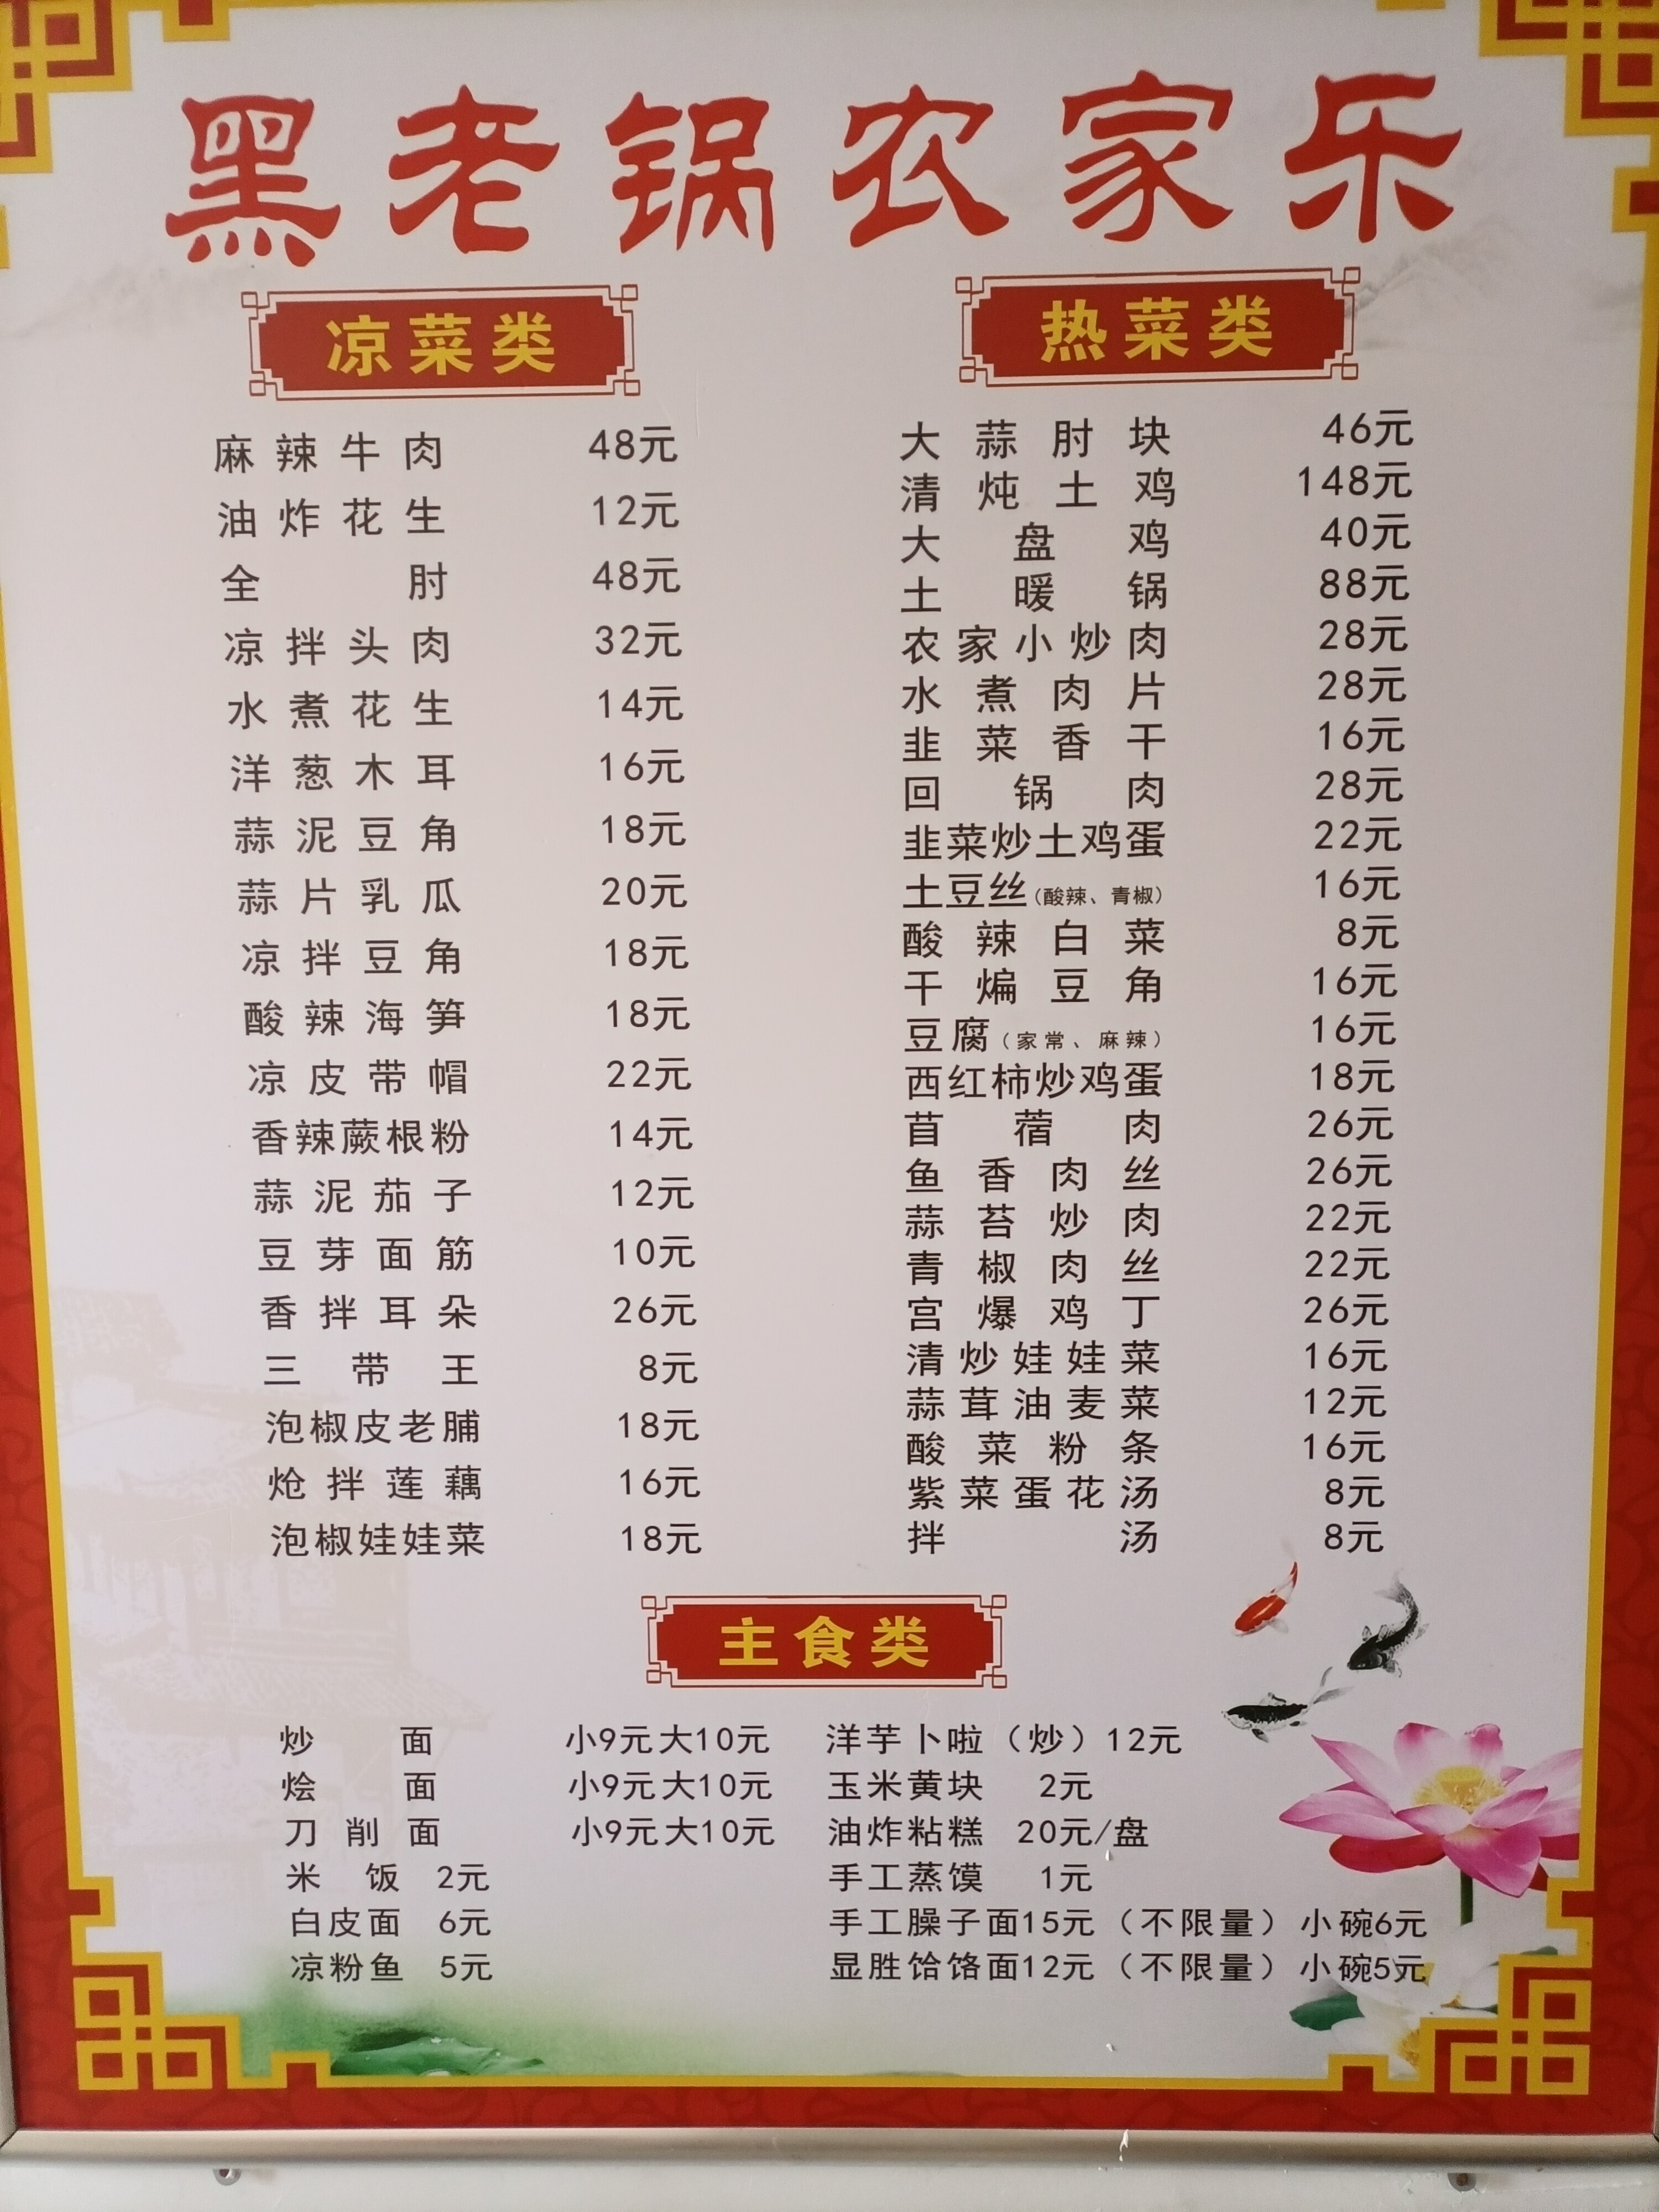 黑老锅农家乐
凉菜类
麻辣牛肉 48元
油炸花生 12元
全肘 48元
凉拌头肉 32元
水煮花生 14元
洋葱木耳 16元
蒜泥豆角 18元
蒜片乳瓜 20元
凉拌豆角 18元
酸辣海笋 18元
凉皮带帽 22元
香辣蕨根粉 14元
蒜泥茄子 12元
豆芽面筋 10元
香拌耳朵 26元
三带王 8元
泡椒皮老脯 18元
炝拌莲藕 16元
泡椒娃娃菜 18元
热菜类
大蒜肘块 46元
清炖土鸡 148元
大盘鸡 40元
土暖锅 88元
农家小炒肉 28元
水煮肉片 28元
韭菜香干 16元
回锅肉 28元
韭菜炒土鸡蛋 22元
土豆丝(酸辣、青椒) 16元
酸辣白菜 8元
干煸豆角 16元
豆腐(家常、麻辣) 16元
西红柿炒鸡蛋 18元
苜蓿肉 26元
鱼香肉丝 26元
蒜苔炒肉 22元
青椒肉丝 22元
宫爆鸡丁 26元
清炒娃娃菜 16元
蒜茸油麦菜 12元
酸菜粉条 16元
紫菜蛋花汤 8元
拌汤 8元
主食类
炒面 小9元 大10元
烩面 小9元 大10元
刀削面 小9元 大10元
米饭 2元
白皮面 6元
凉粉鱼 5元
洋芋卜啦（炒）12元
玉米黄块 2元
油炸粘糕 20元/盘
手工蒸馍 1元
手工臊子面15元（不限量）小碗6元
显胜饸饹面12元（不限量）小碗5元